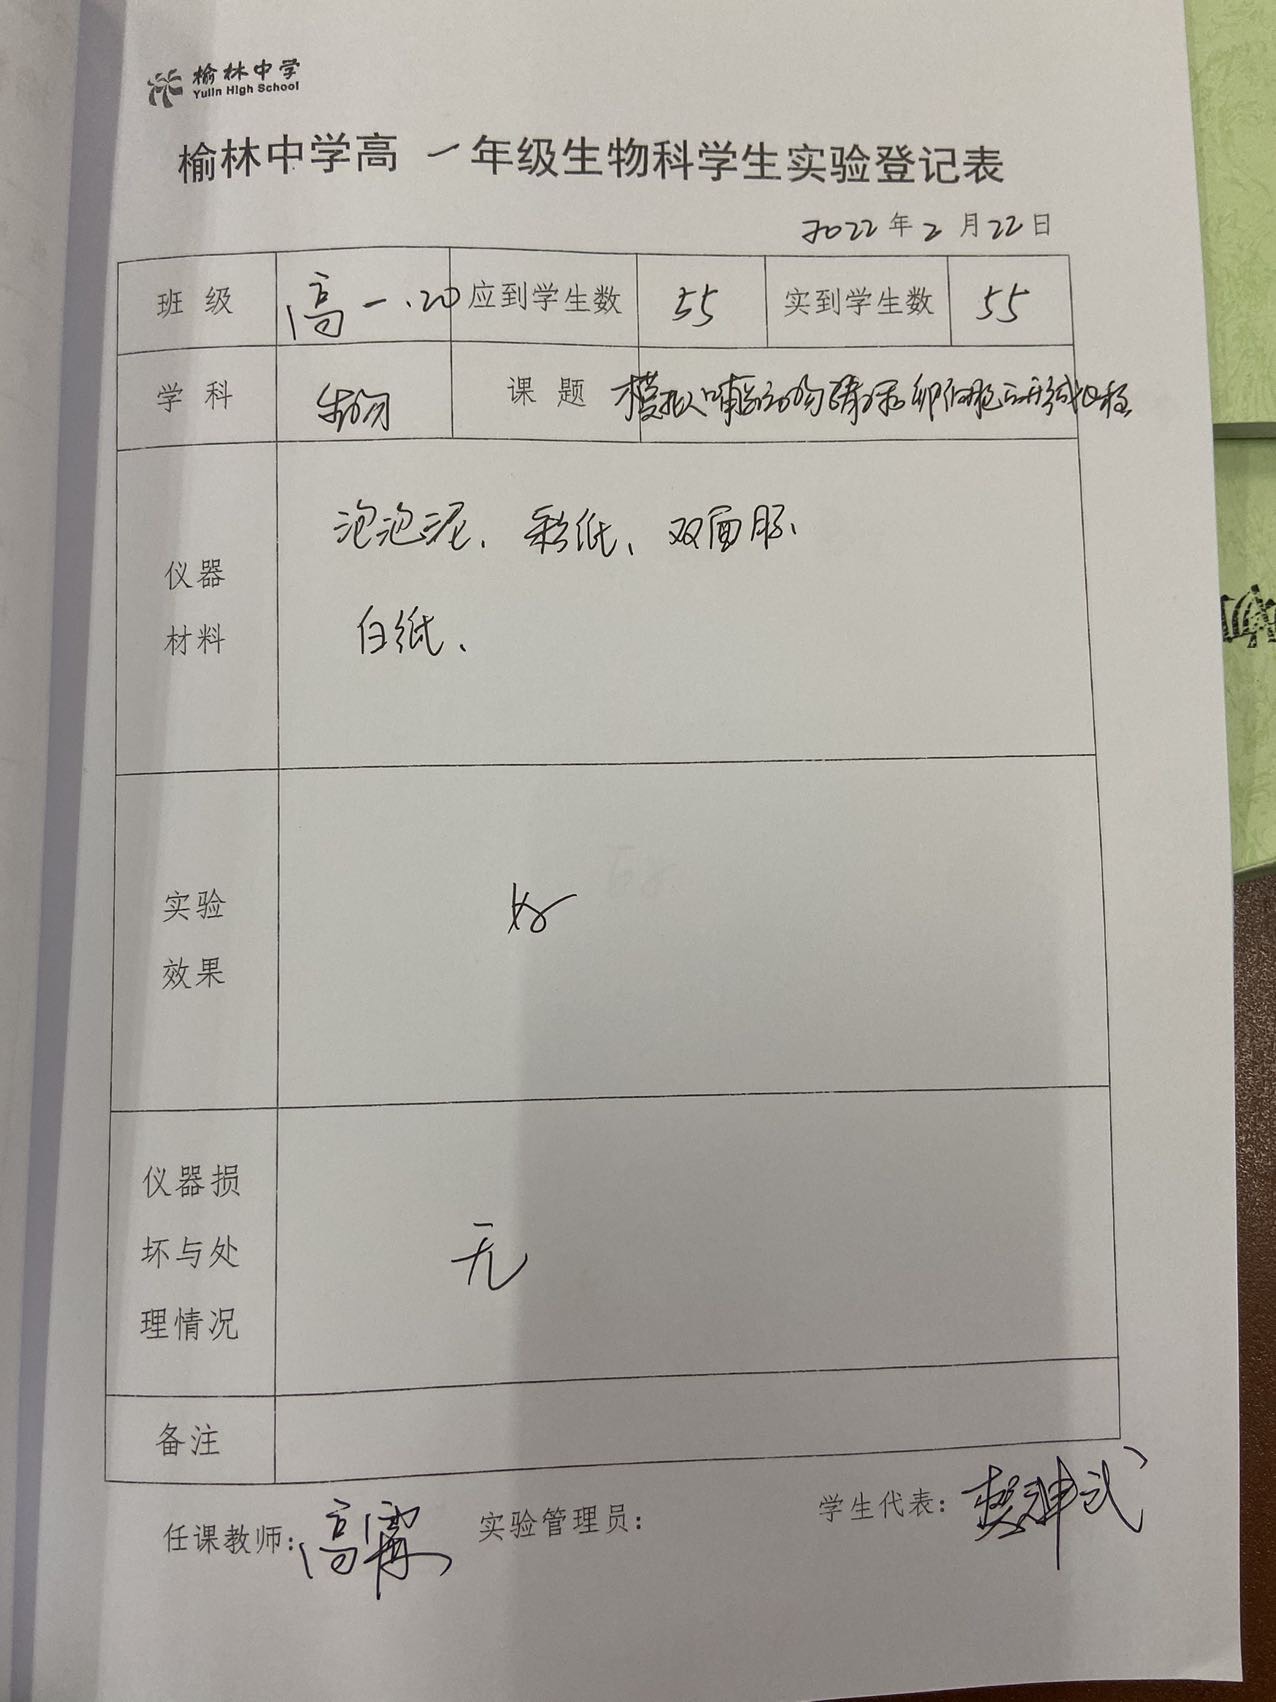 榆林中学
Yulin High School
榆林中学高一年级生物科学生实验登记表
2022年2月22日
班 级 高一.20 应到学生数 55 实到学生数 55
学 科 生物 课 题 模拟哺乳动物精子 卵细胞的形成过程
仪器
材料
泡泡泥、彩纸、双面胶、
白纸、
实验
效果
好
仪器损
坏与处
理情况
无
备注
任课教师: 高霖 实验管理员: 学生代表: